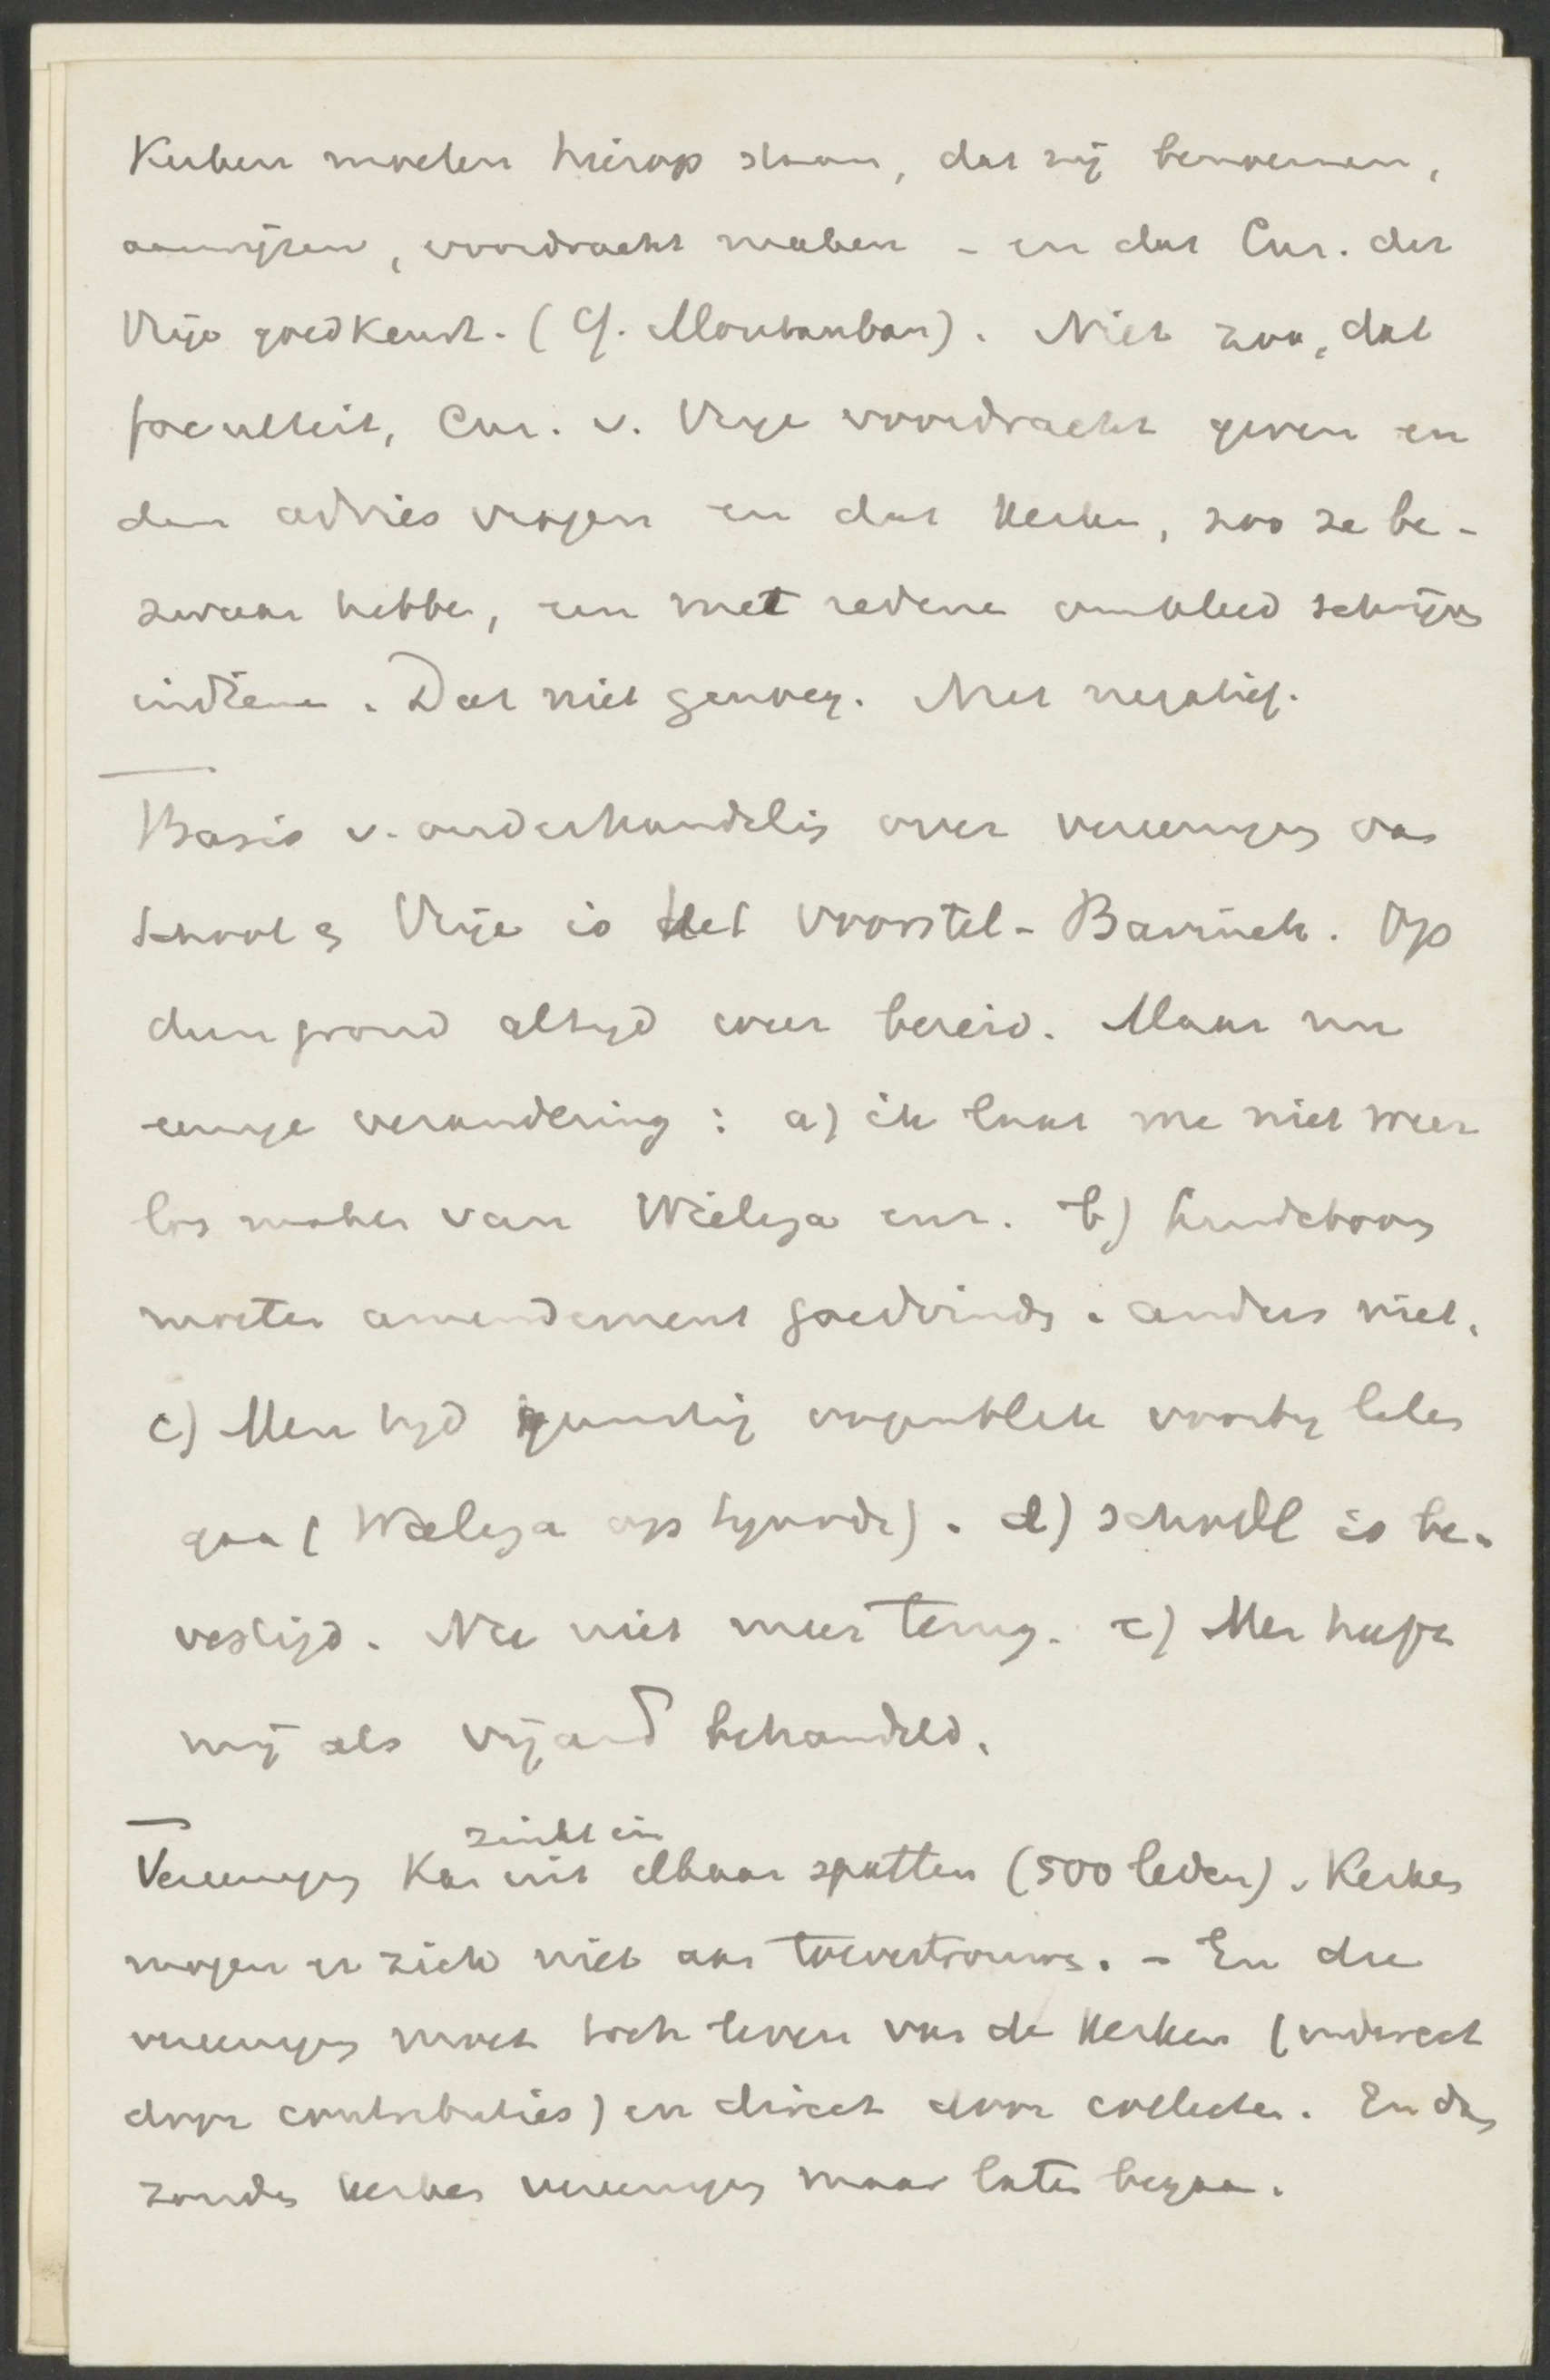 Kerken moeten hierop staan, dat zij benoemen,
aanwijzen, voordracht maken – en dat Cur. der
Vrije goedkeurt. (Cf. Montauban). Niet zoo, dat
faculteit, Cur. v. Vrije voordracht geven en
dan advies vragen en dat kerken, zoo ze be-
zwaar hebben, een met redenen omkleed schrijven
indienen. Dat niet genoeg. Niet negatief.
Basis v. onderhandeling over vereeniging van
School en Vrije is het voorstel-Bavinck. Op
dien grond altijd weer bereid. Maar nu
eenige verandering: a) ik laat me niet weer
los maken van Wielenga enz. b) Lindeboom
moeten amendement goedvinden. anders niet.
c) Men liet gunstig oogenblik voorbij laten
gaan (Wielenga op Synode). d) School is be-
vestigd. Nu niet meer terug. e) Men heeft
mij als vijand behandeld.
zinkt in
Vereeniging kan uit elkaar spatten (500 leden). Kerken
mogen er zich niet aan toevertrouwen. – En die
vereeniging moet toch leven van de kerken (indirect
door contributies) en direct door collecten. En dan
zouden kerken vereeniging maar laten begaan.